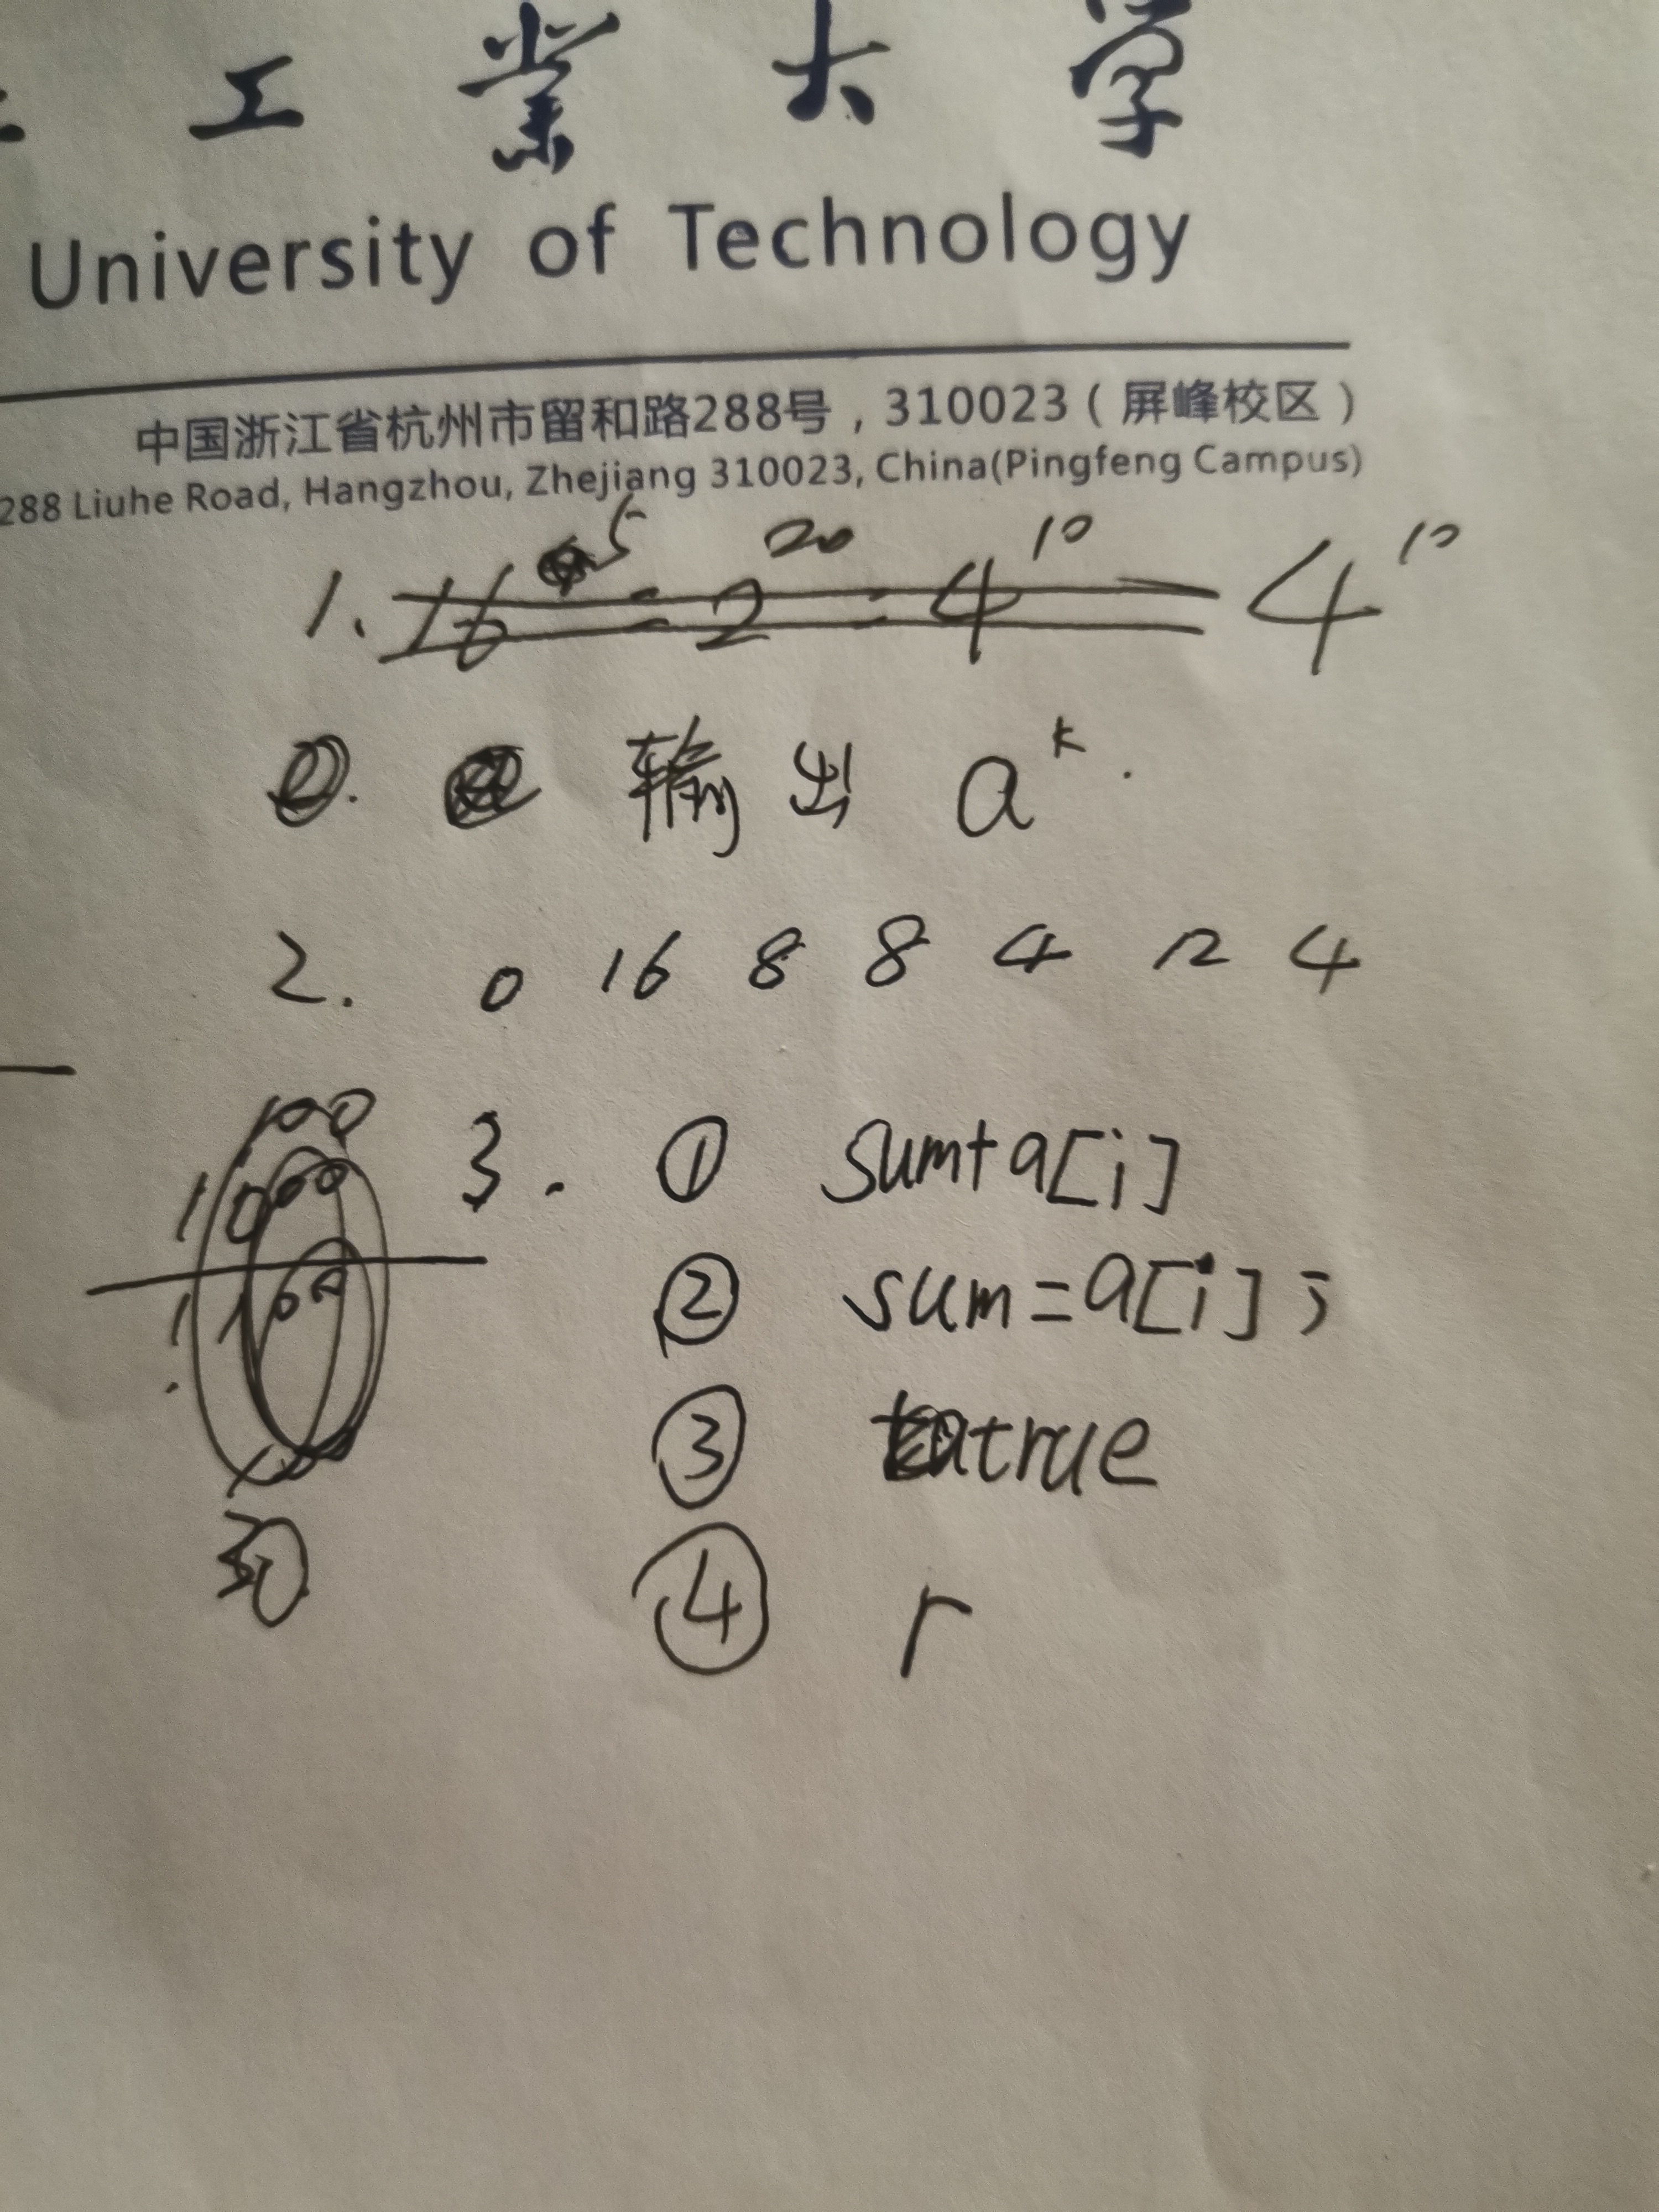 工 業 大 学
University of Technology
中国浙江省杭州市留和路288号，310023（屏峰校区）
288 Liuhe Road, Hangzhou, Zhejiang 310023, China(Pingfeng Campus)
1. 16^5 = 2^20 = 4^10 4^10
输出 a^k.
2. 0 16 8 8 4 12 4
3. ① sum+a[i]
② sum=a[i];
③ true
④ r
100
1000
1100